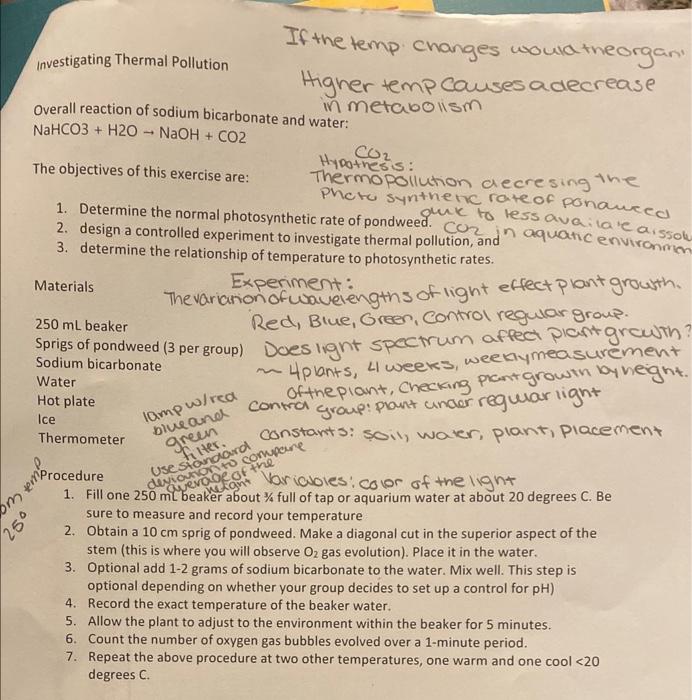 If the temp. changes would the organ
Investigating Thermal Pollution
Higher temp causes a decrease
in metabolism
Overall reaction of sodium bicarbonate and water:
NaHCO3 + H2O → NaOH + CO2
CO2
Hypothesis:
The objectives of this exercise are:
Thermopollution decresing the
Photo synthetic rate of pondweed
due to less available dissolv
1. Determine the normal photosynthetic rate of pondweed.
CO2 in aquatic environmen
2. design a controlled experiment to investigate thermal pollution, and
3. determine the relationship of temperature to photosynthetic rates.
Materials
Experiment:
The variation of wavelengths of light effect plant growth.
Red, Blue, Green, Control regular group.
250 mL beaker
Sprigs of pondweed (3 per group)
Does light spectrum affect plant growth?
Sodium bicarbonate
~ 4 plants, 4 weeks, weekly measurement
Water
of the plant, Checking plant growth by height.
Hot plate
control group: plant under regular light
Ice
lamp w/red
blue and
green
filter.
Thermometer
constants: soil, water, plant, placement
use standard
deviation to compare
average of the
height
Variables: color of the light
Procedure
om temp
25°
1. Fill one 250 mL beaker about ¾ full of tap or aquarium water at about 20 degrees C. Be
sure to measure and record your temperature
2. Obtain a 10 cm sprig of pondweed. Make a diagonal cut in the superior aspect of the
stem (this is where you will observe O2 gas evolution). Place it in the water.
3. Optional add 1-2 grams of sodium bicarbonate to the water. Mix well. This step is
optional depending on whether your group decides to set up a control for pH)
4. Record the exact temperature of the beaker water.
5. Allow the plant to adjust to the environment within the beaker for 5 minutes.
6. Count the number of oxygen gas bubbles evolved over a 1-minute period.
7. Repeat the above procedure at two other temperatures, one warm and one cool <20
degrees C.